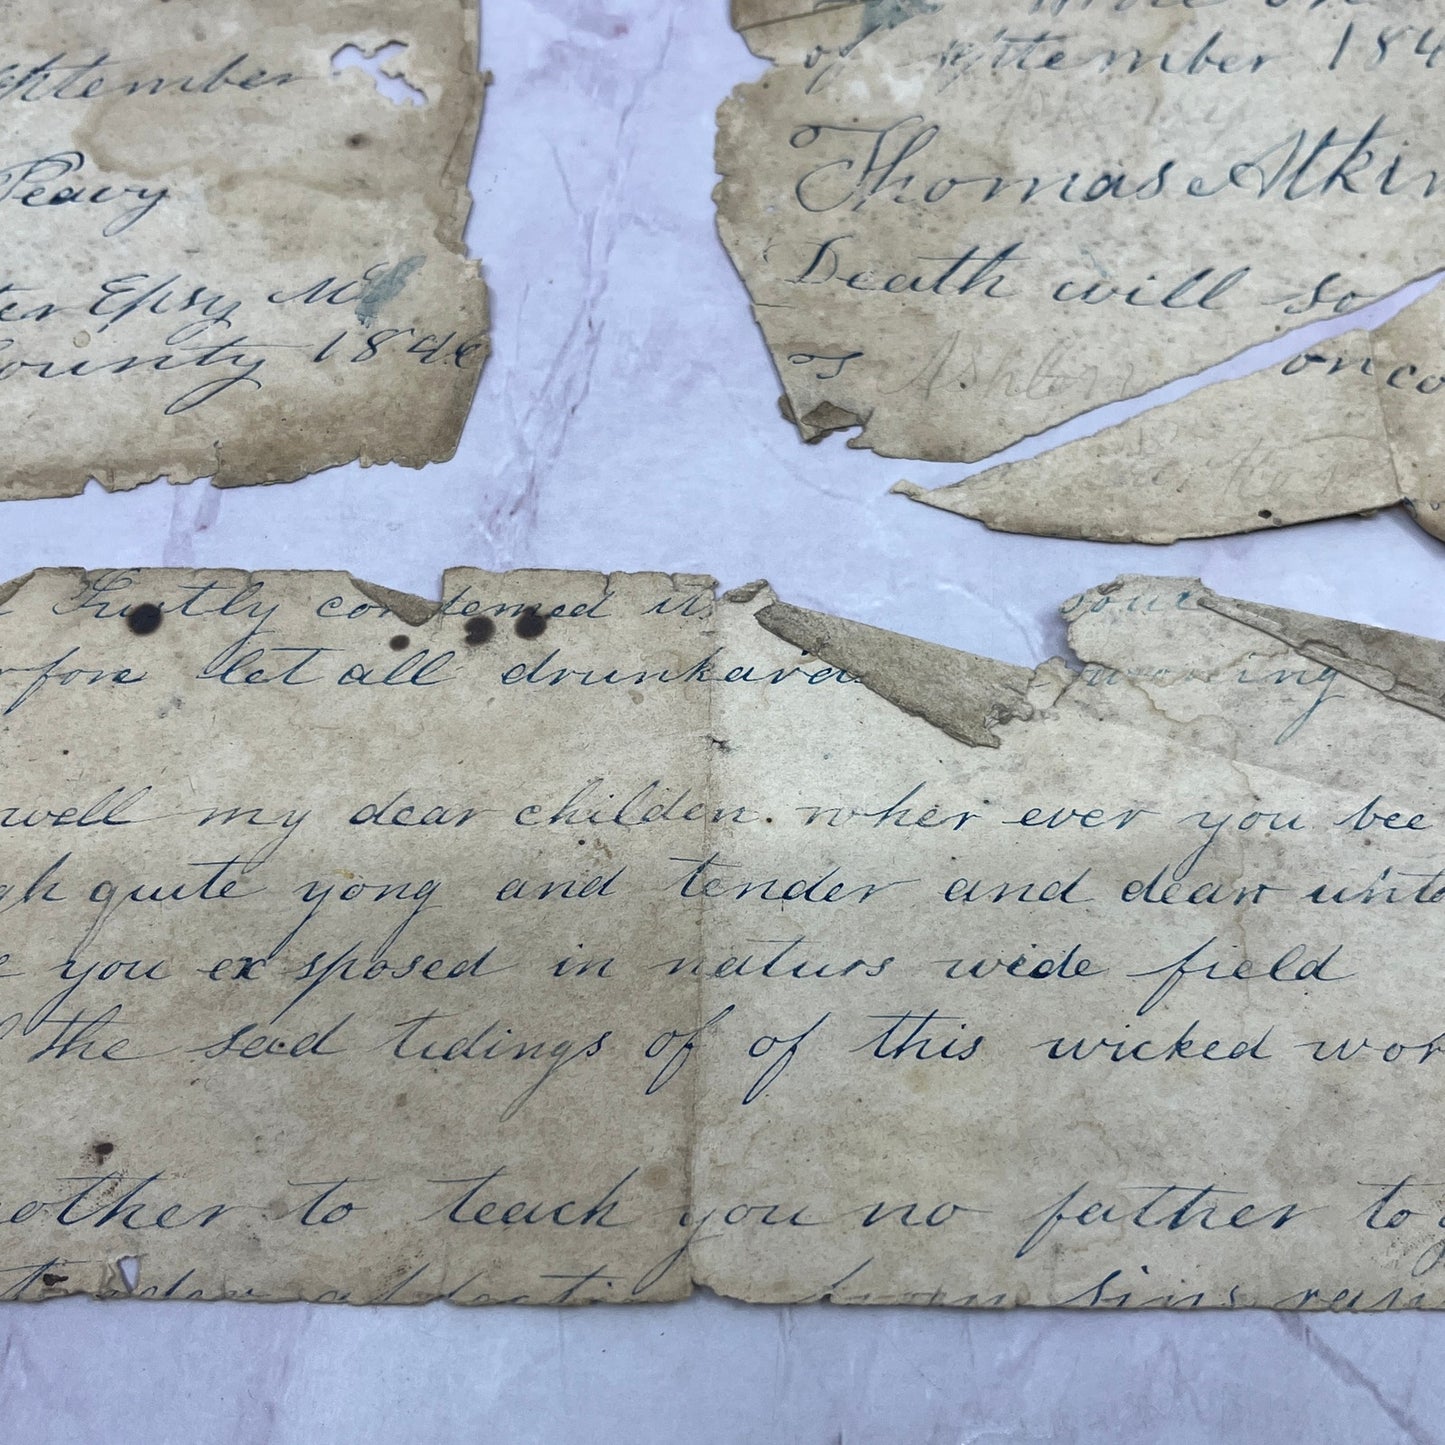 September
Peavy
ter Epsy Mc
County 184
of september 184
Thomas Atkin
Death will so
as Ashborn
onco
Justly condemned it
fore let all drunkards
your
morning
well my dear childen. wher ever you bee
gh quite yong and tender and dear unto
e you exsposed in naturs wide field
the sad tidings of of this wicked wor
mother to teach you no father to
from sins